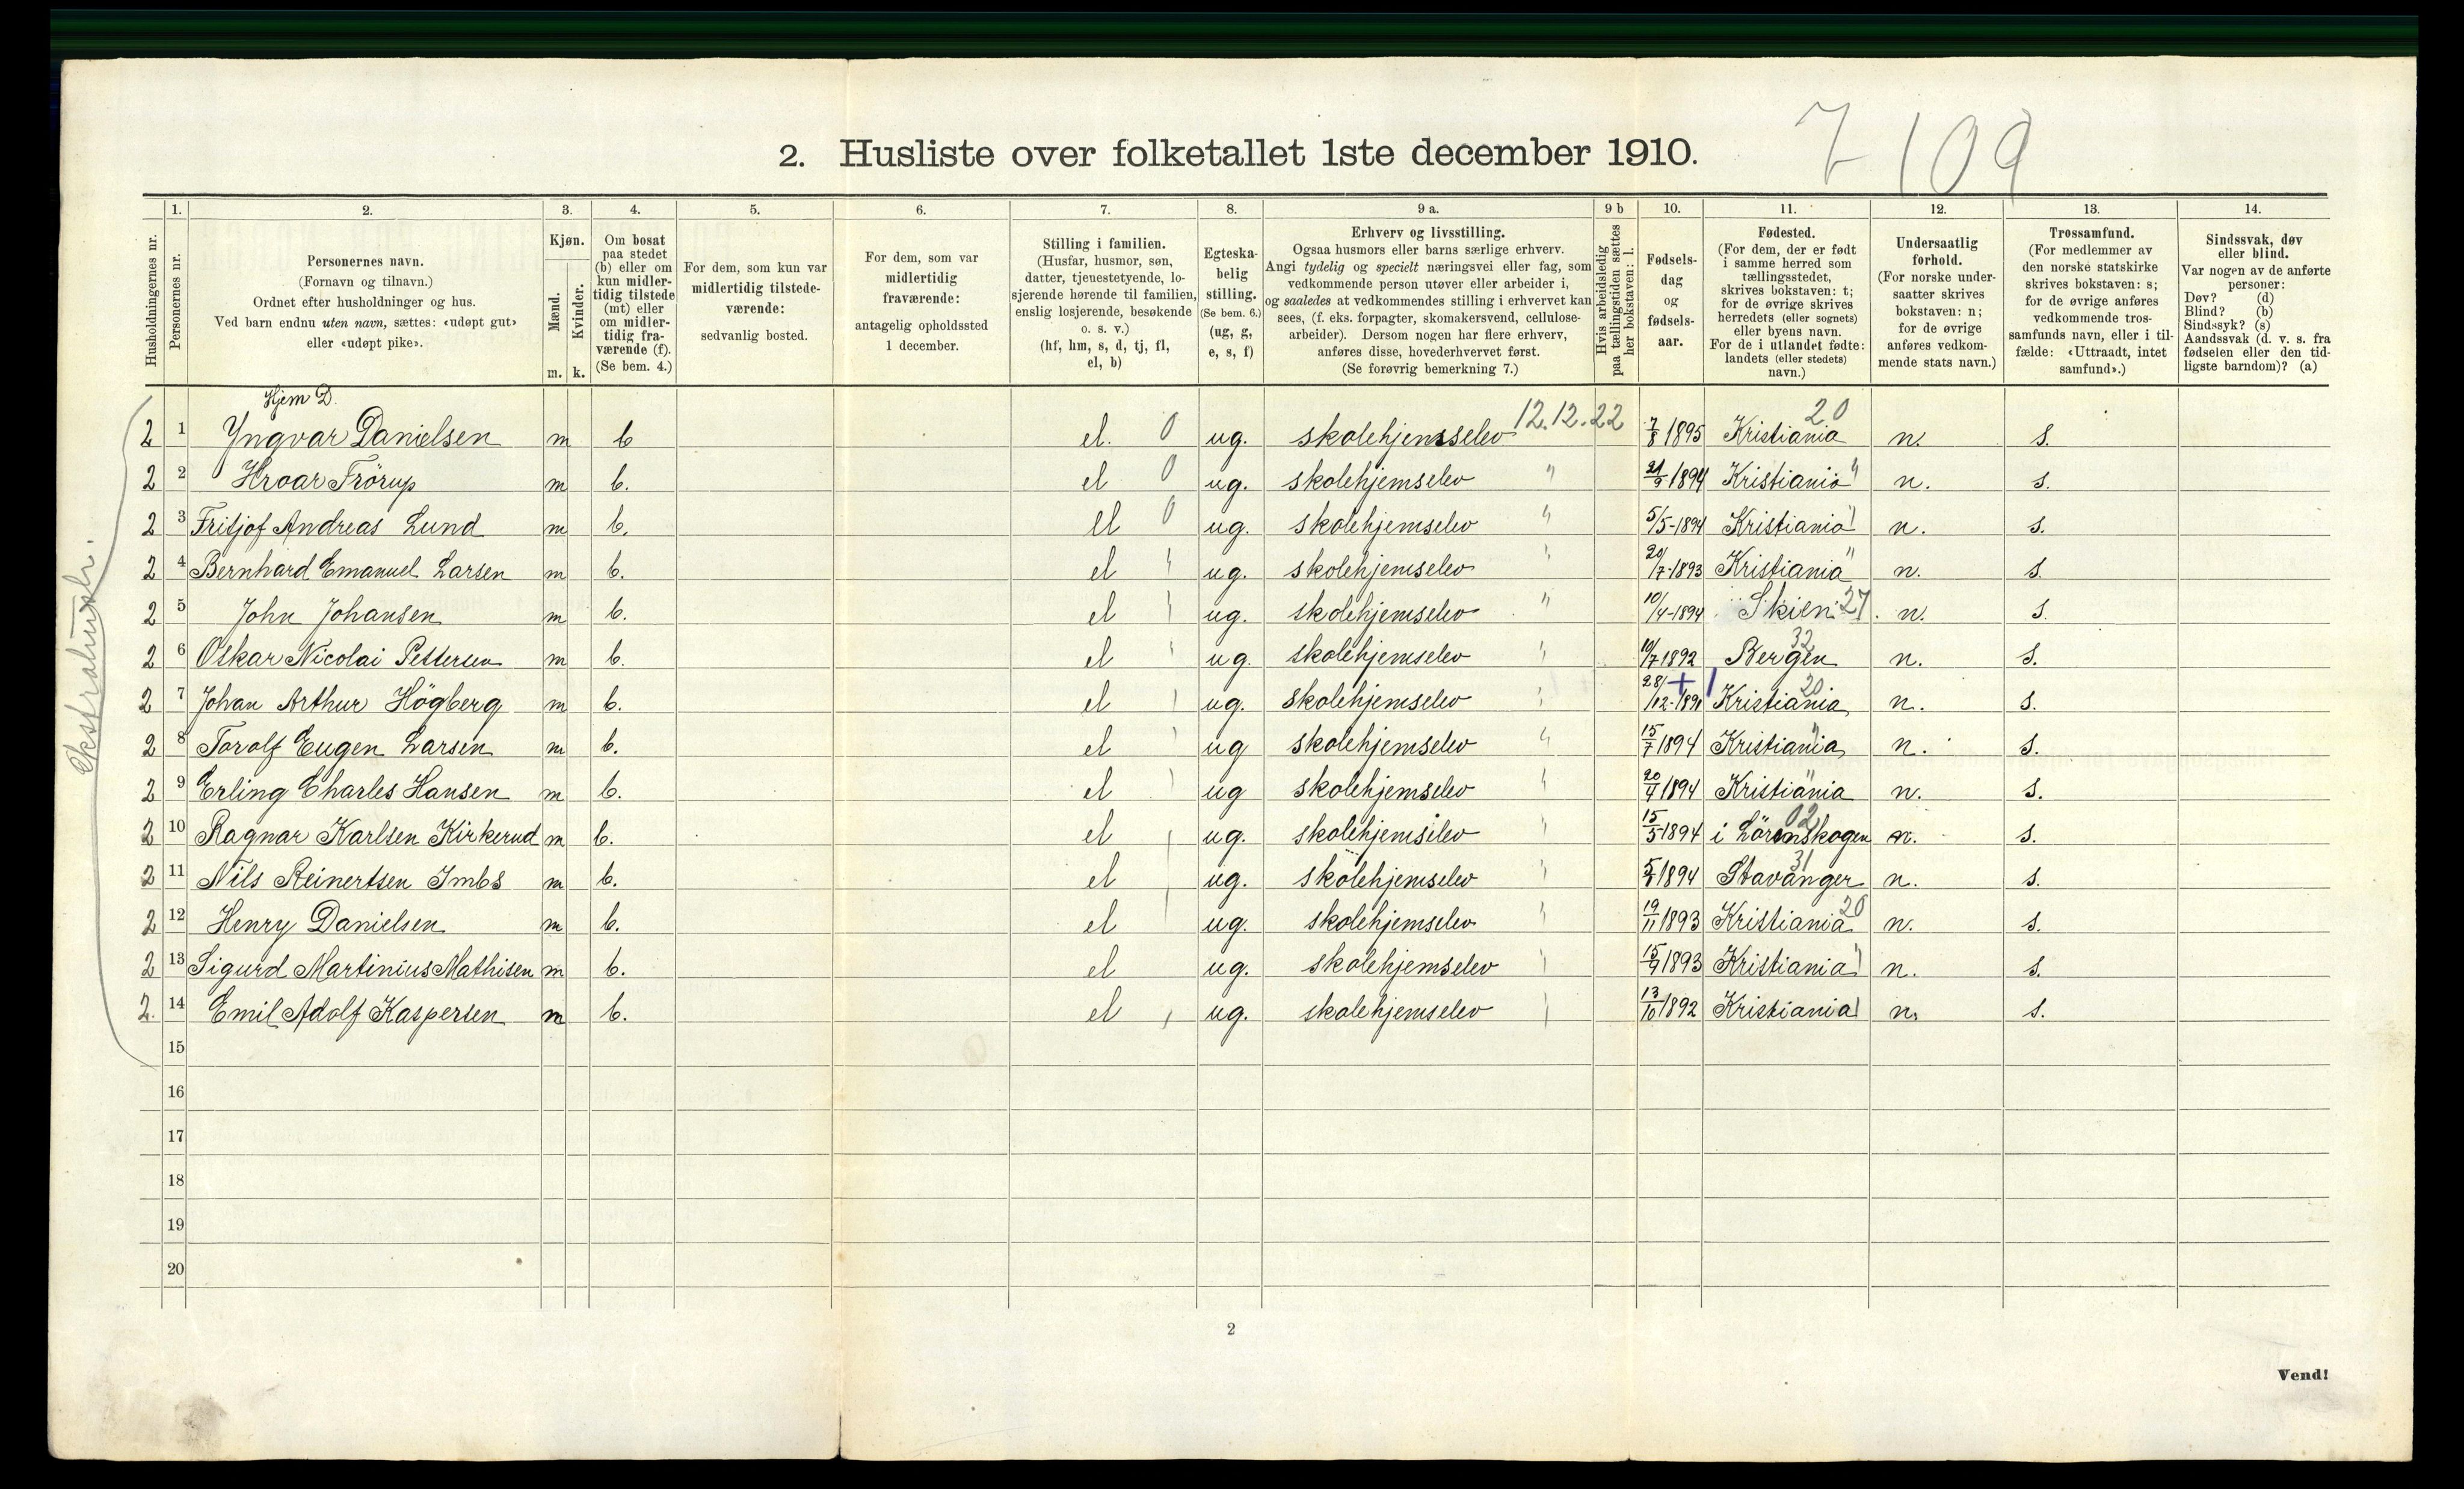 7 109
2. Husliste over folketallet 1ste december 1910.
1. 2. 3. 4. 5. 6. 7. 8. 9 a. 9 b 10. 11. 12. 13. 14.
Husholdningernes nr.
Personernes nr.
Personernes navn.
(Fornavn og tilnavn.)
Ordnet efter husholdninger og hus.
Ved barn endnu uten navn, sættes: «udøpt gut»
eller «udøpt pike».
Kjøn.
Mænd.
Kvinder.
m. k.
Om bosat
paa stedet
(b) eller om
kun midler-
tidig tilstede
(mt) eller
om midler-
tidig fra-
værende (f).
(Se bem. 4.)
For dem, som kun var
midlertidig tilstede-
værende:
sedvanlig bosted.
For dem, som var
midlertidig
fraværende:
antagelig opholdssted
1 december.
Stilling i familien.
(Husfar, husmor, søn,
datter, tjenestetyende, lo-
sjerende hørende til familien,
enslig losjerende, besøkende
o. s. v.)
(hf, hm, s, d, tj, fl,
el, b)
Egteska-
belig
stilling.
(Se bem. 6.)
(ug, g,
e, s, f)
Erhverv og livsstilling.
Ogsaa husmors eller barns særlige erhverv.
Angi tydelig og specielt næringsvei eller fag, som
vedkommende person utøver eller arbeider i,
og saaledes at vedkommendes stilling i erhvervet kan
sees, (f. eks. forpagter, skomakersvend, cellulose-
arbeider). Dersom nogen har flere erhverv,
anføres disse, hovederhvervet først.
(Se forøvrig bemerkning 7.)
Hvis arbeidsledig
paa tællingstiden sættes
her bokstaven: l.
Fødsels-
dag
og
fødsels-
aar.
Fødested.
(For dem, der er født
i samme herred som
tællingsstedet,
skrives bokstaven: t;
for de øvrige skrives
herredets (eller sognets)
eller byens navn.
For de i utlandet fødte:
landets (eller stedets)
navn.)
Undersaatlig
forhold.
(For norske under-
saatter skrives
bokstaven: n;
for de øvrige
anføres vedkom-
mende stats navn.)
Trossamfund.
(For medlemmer av
den norske statskirke
skrives bokstaven: s;
for de øvrige anføres
vedkommende tros-
samfunds navn, eller i til-
fælde: «Uttraadt, intet
samfund».)
Sindssvak, døv
eller blind.
Var nogen av de anførte
personer:
Døv? (d)
Blind? (b)
Sindssyk? (s)
Aandssvak (d. v. s. fra
fødselen eller den tid-
ligste barndom)? (a)
Hjem D.
2 1 Yngvar Danielsen m b el. 0 ug. skolehjemselev 12.12.22 7/8 1895 Kristiania 20 n. s.
2 2 Hroar Frörup m b. el 0 ug. skolehjemselev " 21/9 1894 Kristiania " n. s.
2 3 Fritjof Andreas Lund m b. el 0 ug. skolehjemselev " 5/5-1894 Kristiania n. s.
2 4 Bernhard Emanuel Larsen m b. el ug. skolehjemselev " 20/7-1893 Kristiania " n. s.
2 5 John Johansen m b. el ug. skolehjemselev " 10/4-1894 Skien 27 n. s.
2 6 Oskar Nicolai Pettersen m b. el ug. skolehjemselev " 10/7 1892 Bergen 32 n. s.
2 7 Johan Arthur Högberg m b. el ug. skolehjemselev " 28/12-1891 Kristiania 20 n. s.
2 8 Torolf Eugen Larsen m b. el ug skolehjemselev " 15/7 1894 Kristiania " n. s.
2 9 Erling Charles Hansen m b. el ug skolehjemselev " 20/4 1894 Kristiania " n. s.
2 10 Ragnar Karlsen Kirkerud m b. el ug. skolehjemselev " 15/5 1894 i Lörenskogen 02 n. s.
2 11 Nils Reinertsen Imbs m b. el ug. skolehjemselev " 1894 Stavanger 31 n. s.
2 12 Henry Danielsen m b. el ug. skolehjemselev " 19/11 1893 Kristiania 20 n. s.
2 13 Sigurd Martinius Mathisen m b. el ug. skolehjemselev " 15/9 1893 Kristiania n. s.
2. 14 Emil Adolf Kaspersen m b. el ug. skolehjemselev 13/10 1892 Kristiania n. s.
15
16
17
18
19
20
Ekstrahush.
2
Vend!